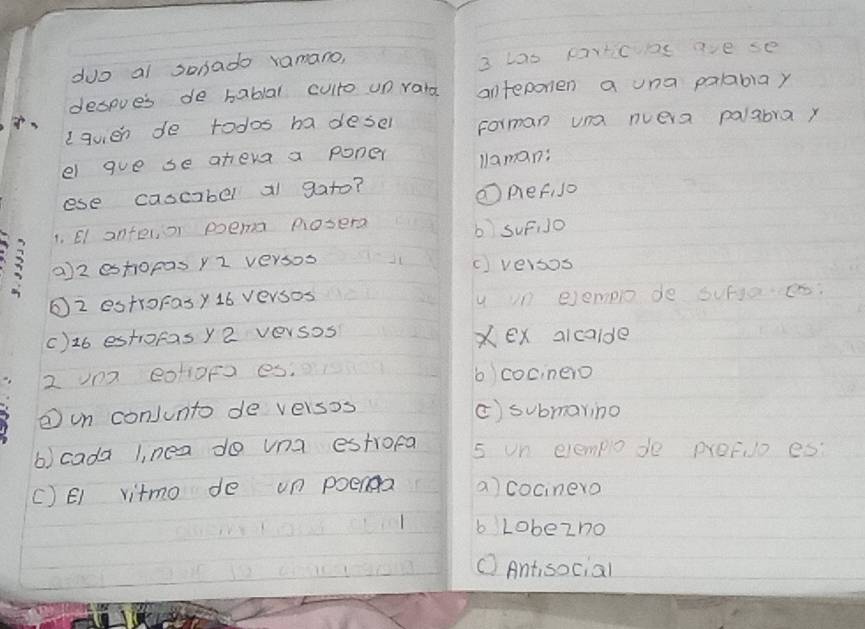 duo al sonado ramano,
despues de hablal culto un rata
¿quien de todos ha desel
el que se atreva a poner
ese cascabel al gato?
1. El anterior poema Prosera
a) 2 estrofas y 2 versos
b) 2 estrofas y 16 versos
c) 16 estrofas y 2 versos
2 una estrofa es:
a) un conjunto de versos
b) cada linea de una estrofa
C) El ritmo de un poema
3 Las particulas que se
anteponen a una palabra y
Forman una nueva palabra y
llaman:
a) Prefijo
b) sufijo
c) versos
4 un ejemplo de sufijo es:
ex alcalde
b) cocinero
c) submarino
5 un ejemplo de prefijo es:
a) cocinero
b) Lobezno
c) Antisocial